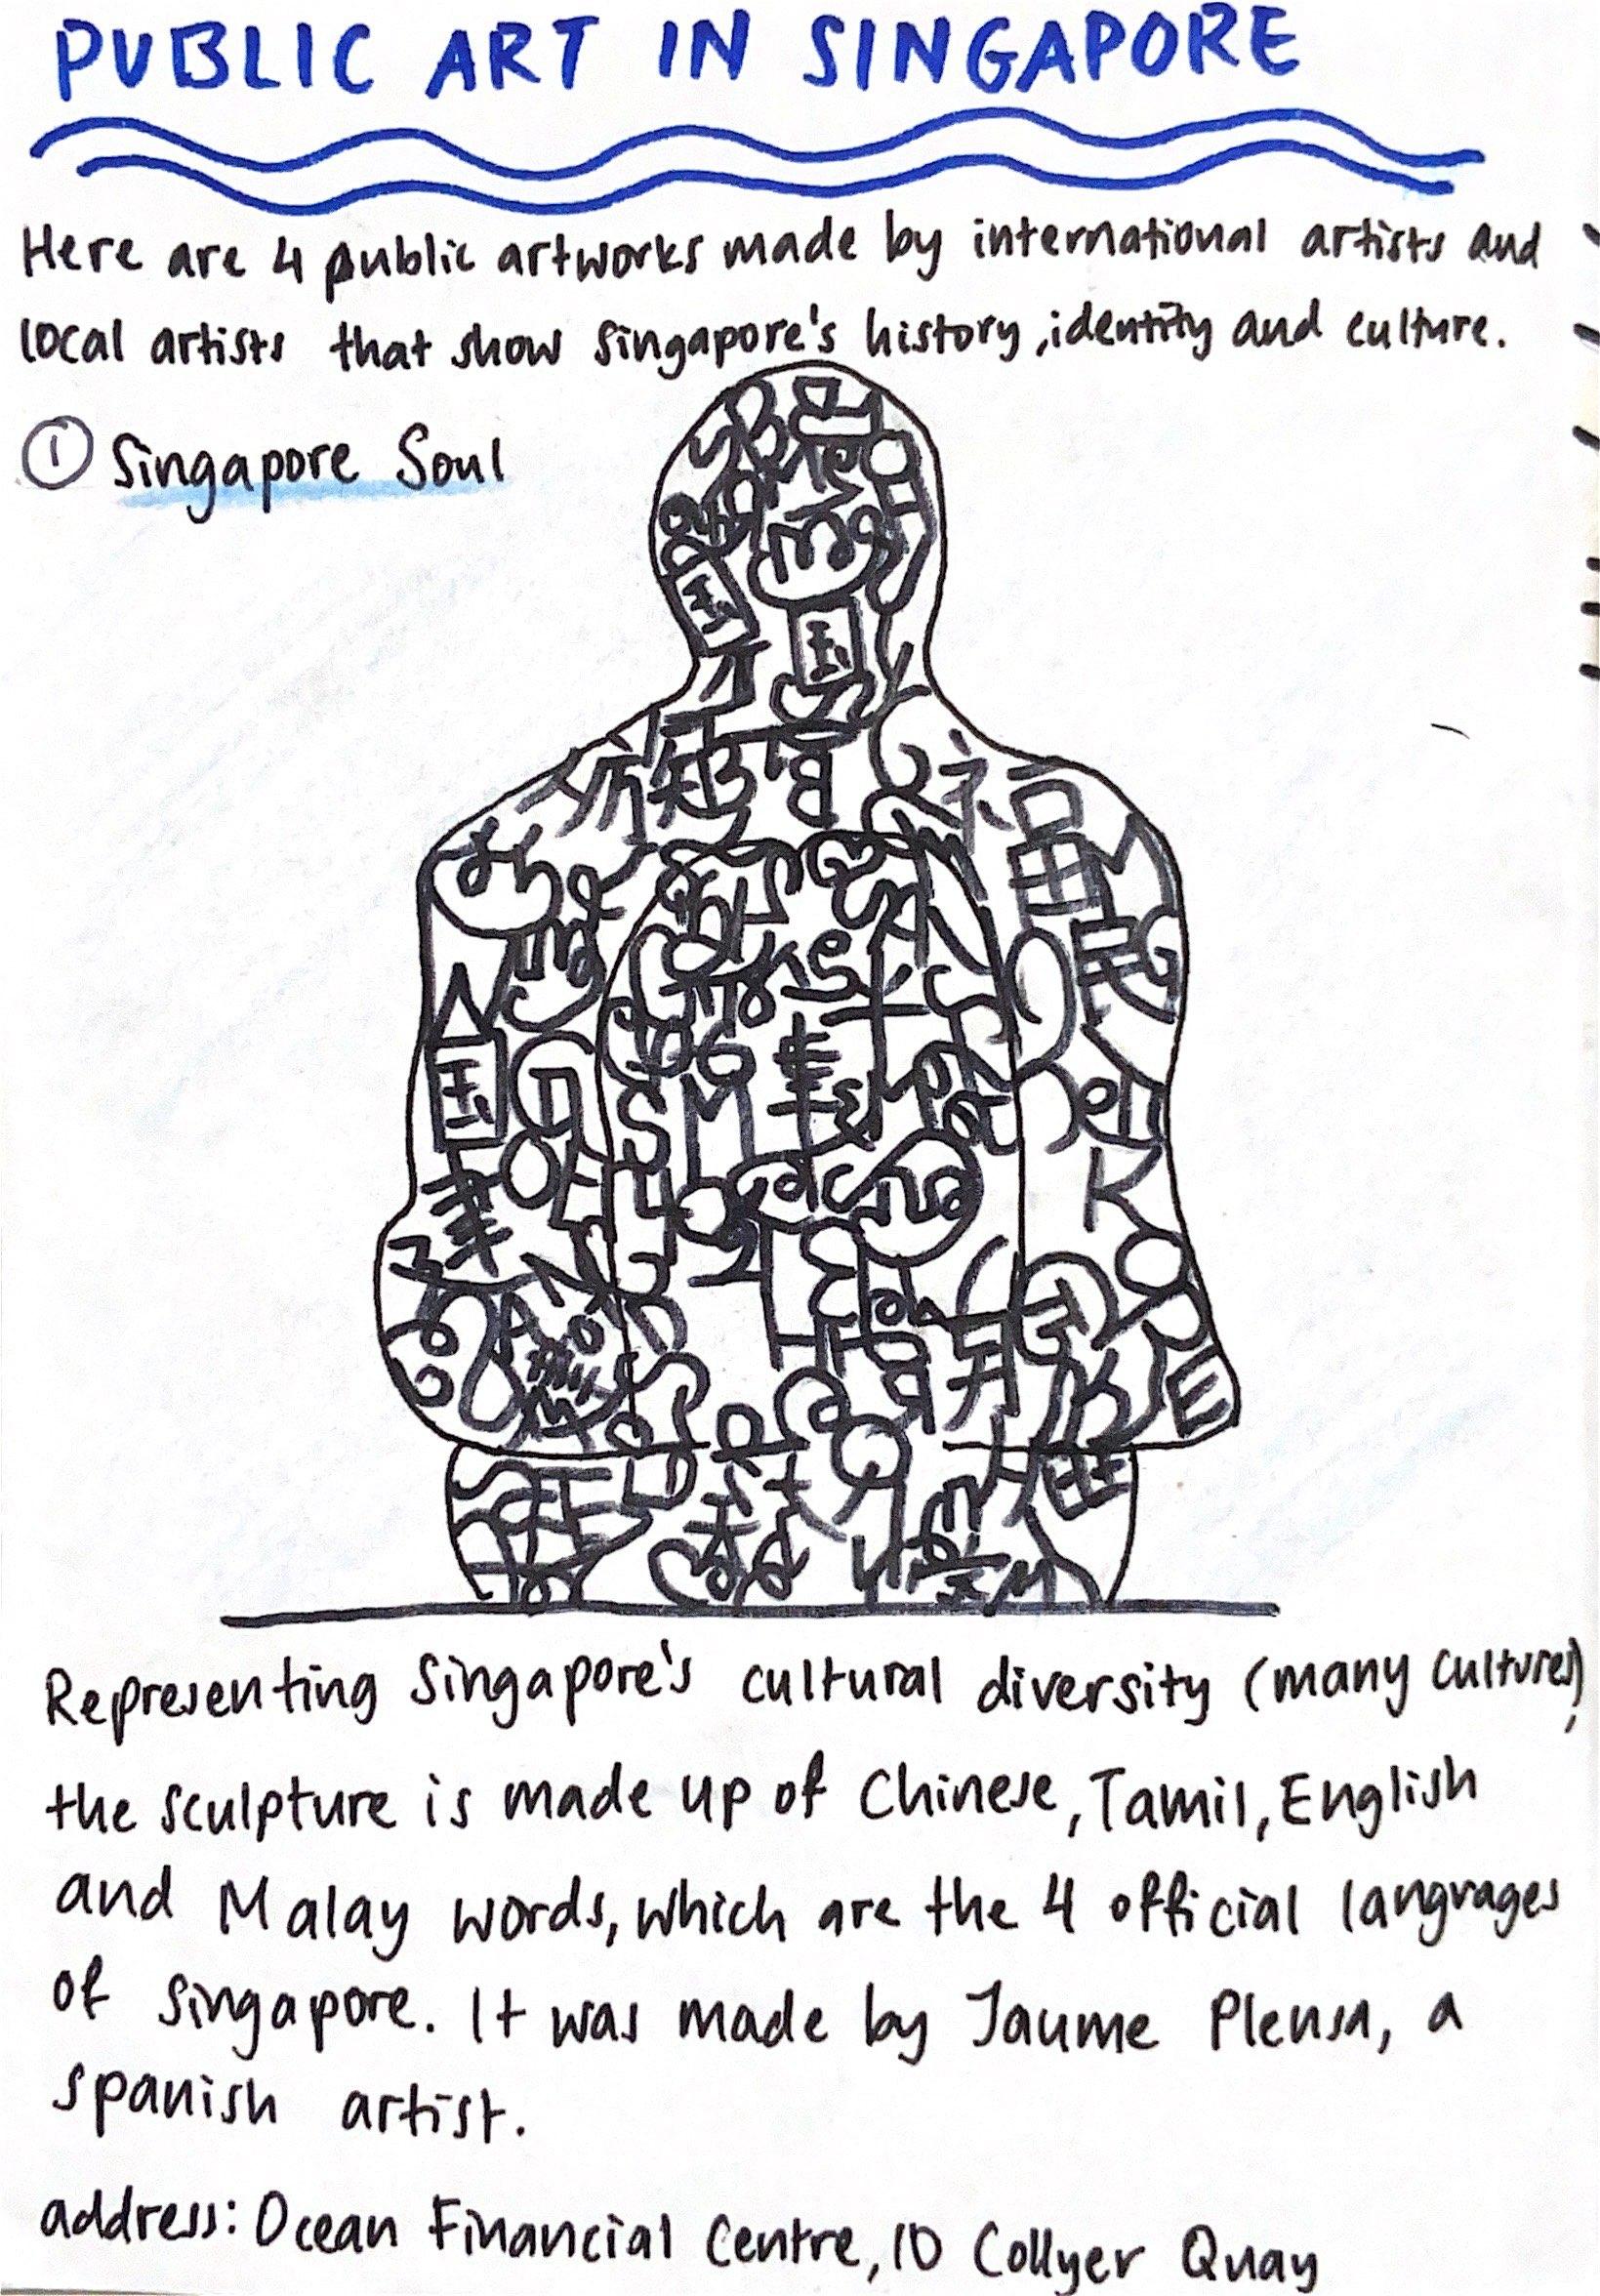 PUBLIC ART IN SINGAPORE
Here are 4 public artworks made by international artists and
local artists that show Singapore's history, identity and culture.
① Singapore Soul
Representing Singapore's cultural diversity (many cultures),
the sculpture is made up of Chinese, Tamil, English
and Malay words, which are the 4 official languages
of Singapore. It was made by Jaume Plensa, a
spanish artist.
address: Ocean Financial Centre, 10 Collyer Quay